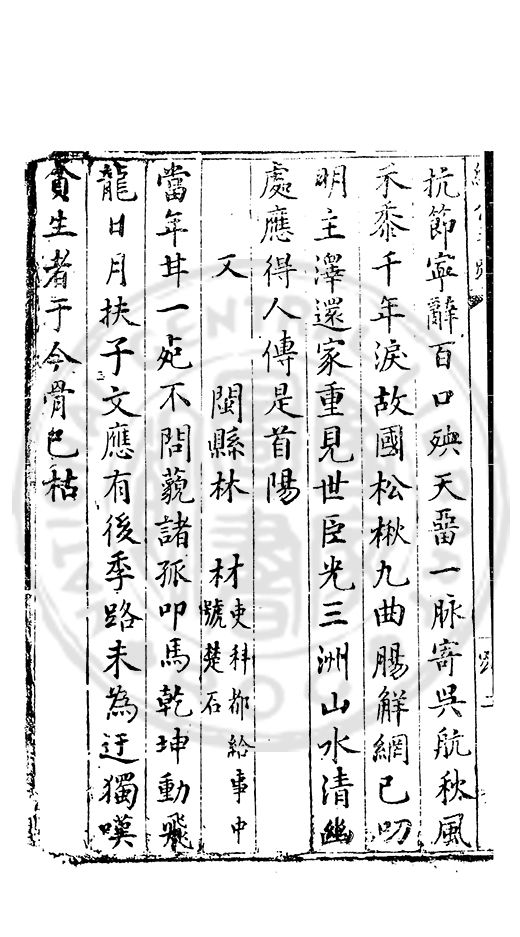 抗節寧辭百口殃天畱一脉寄吳航秋風
禾黍千年淚故國松楸九曲腸觧網已叨
明主澤還家重見世臣光三洲山水清幽
處應得人傳是首陽
又 閩縣林 材吏科都給事中號楚石
當年甘一死不問藐諸孤叩馬乾坤動飛
龍日月扶子文應有後季路未為迂獨嘆
貪生者于今骨已枯